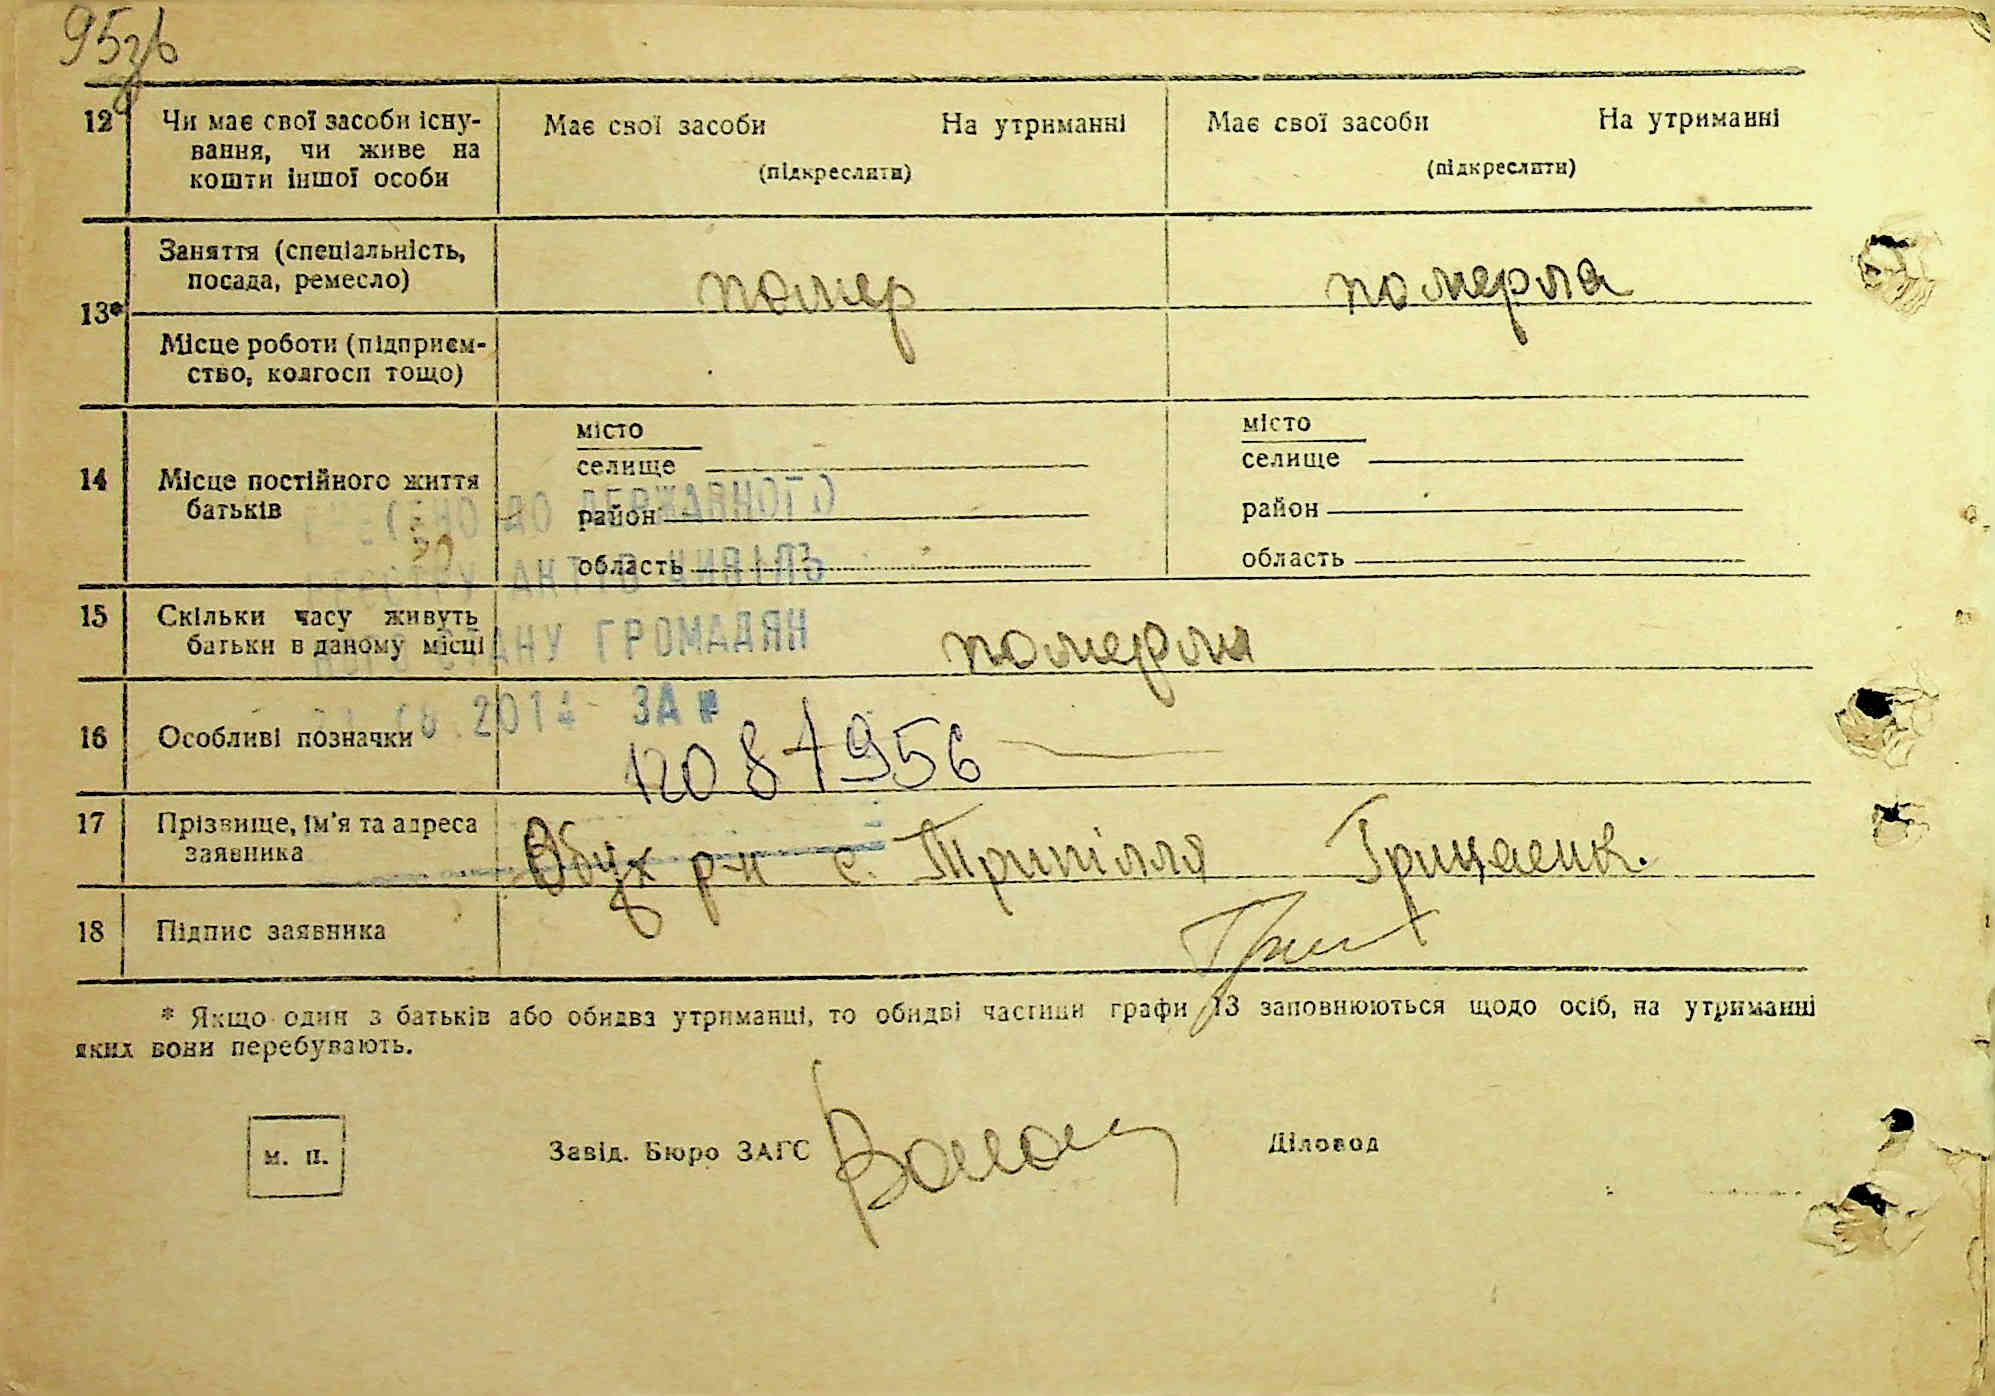 95зв
12 Чи має свої засоби існу-
вання, чи живе на
кошти іншої особи
Має свої засоби На утриманні
(підкреслити)
Має свої засоби На утриманні
(підкреслити)
13*
Заняття (спеціальність,
посада, ремесло)
помер
померла
Місце роботи (підприєм-
ство, колгосп тощо)
14 Місце постійного життя
батьків
місто
селище
район
область
місто
селище
район
область
ДО ДЕРЖАВНОГО
АКТІВ ЦИВІЛЬ
СТАНУ ГРОМАДЯН
2014 ЗА №
15 Скільки часу живуть
батьки в даному місці
померли
16 Особливі позначки
12087956
17 Прізвище, ім'я та адреса
заявника
Обух р-н с. Трипілля Грицаенк.
18 Підпис заявника
* Якщо один з батьків або обидва утриманці, то обидві частини графи 13 заповнюються щодо осіб, на утриманні
яких вони перебувають.
м. п.
Завід. Бюро ЗАГС
Діловод